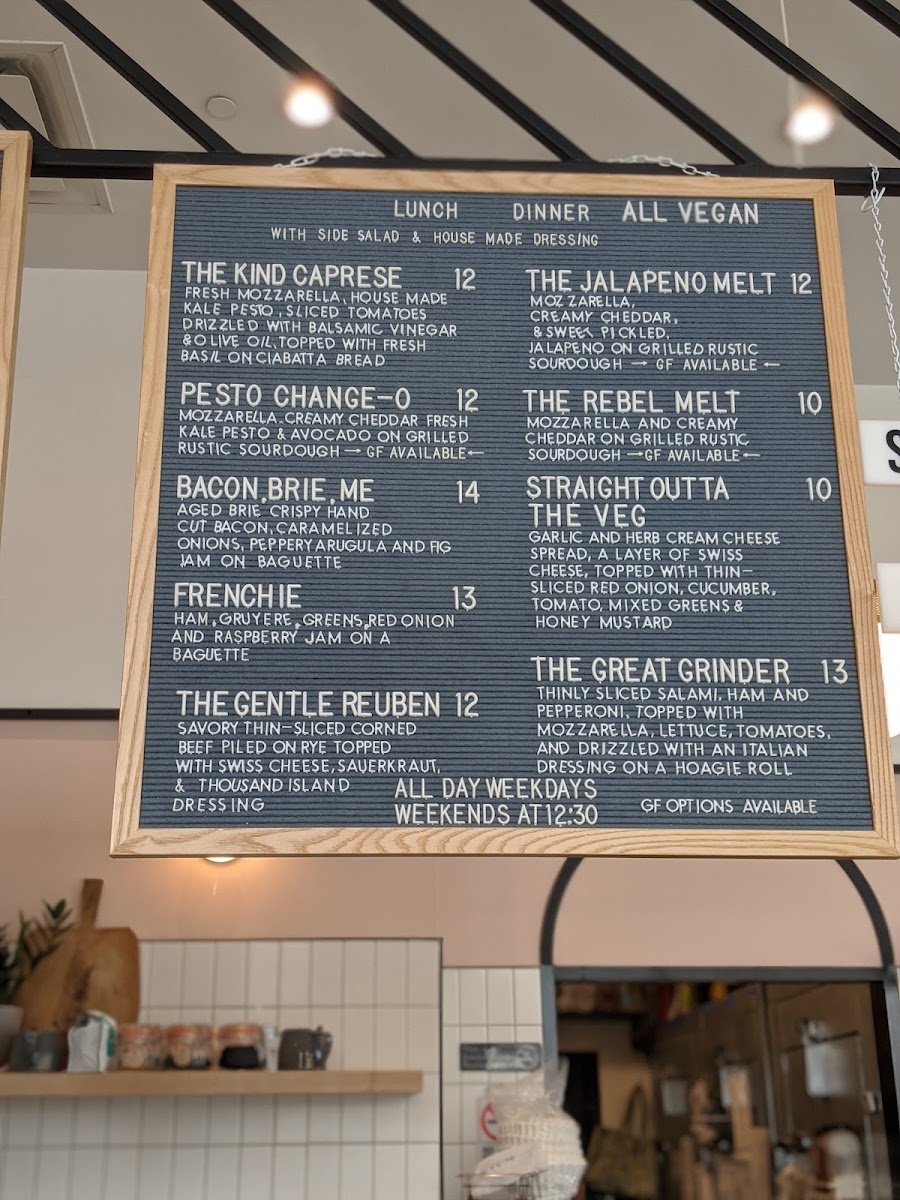 LUNCH DINNER ALL VEGAN
WITH SIDE SALAD & HOUSE MADE DRESSING
THE KIND CAPRESE 12
FRESH MOZZARELLA, HOUSE MADE
KALE PESTO, SLICED TOMATOES
DRIZZLED WITH BALSAMIC VINEGAR
& OLIVE OIL, TOPPED WITH FRESH
BASIL ON CIABATTA BREAD
PESTO CHANGE-O 12
MOZZARELLA, CREAMY CHEDDAR FRESH
KALE PESTO & AVOCADO ON GRILLED
RUSTIC SOURDOUGH → GF AVAILABLE ←
BACON, BRIE, ME 14
AGED BRIE CRISPY HAND
CUT BACON, CARAMELIZED
ONIONS, PEPPERY ARUGULA AND FIG
JAM ON BAGUETTE
FRENCHIE 13
HAM, GRUYERE, GREENS, RED ONION
AND RASPBERRY JAM ON A
BAGUETTE
THE GENTLE REUBEN 12
SAVORY THIN-SLICED CORNED
BEEF PILED ON RYE TOPPED
WITH SWISS CHEESE, SAUERKRAUT,
& THOUSAND ISLAND
DRESSING
THE JALAPENO MELT 12
MOZZARELLA,
CREAMY CHEDDAR,
& SWEET PICKLED,
JALAPENO ON GRILLED RUSTIC
SOURDOUGH → GF AVAILABLE ←
THE REBEL MELT 10
MOZZARELLA AND CREAMY
CHEDDAR ON GRILLED RUSTIC
SOURDOUGH → GF AVAILABLE ←
STRAIGHT OUTTA 10
THE VEG
GARLIC AND HERB CREAM CHEESE
SPREAD, A LAYER OF SWISS
CHEESE, TOPPED WITH THIN-
SLICED RED ONION, CUCUMBER,
TOMATO, MIXED GREENS &
HONEY MUSTARD
THE GREAT GRINDER 13
THINLY SLICED SALAMI, HAM AND
PEPPERONI, TOPPED WITH
MOZZARELLA, LETTUCE, TOMATOES,
AND DRIZZLED WITH AN ITALIAN
DRESSING ON A HOAGIE ROLL
ALL DAY WEEKDAYS
WEEKENDS AT 12:30
GF OPTIONS AVAILABLE